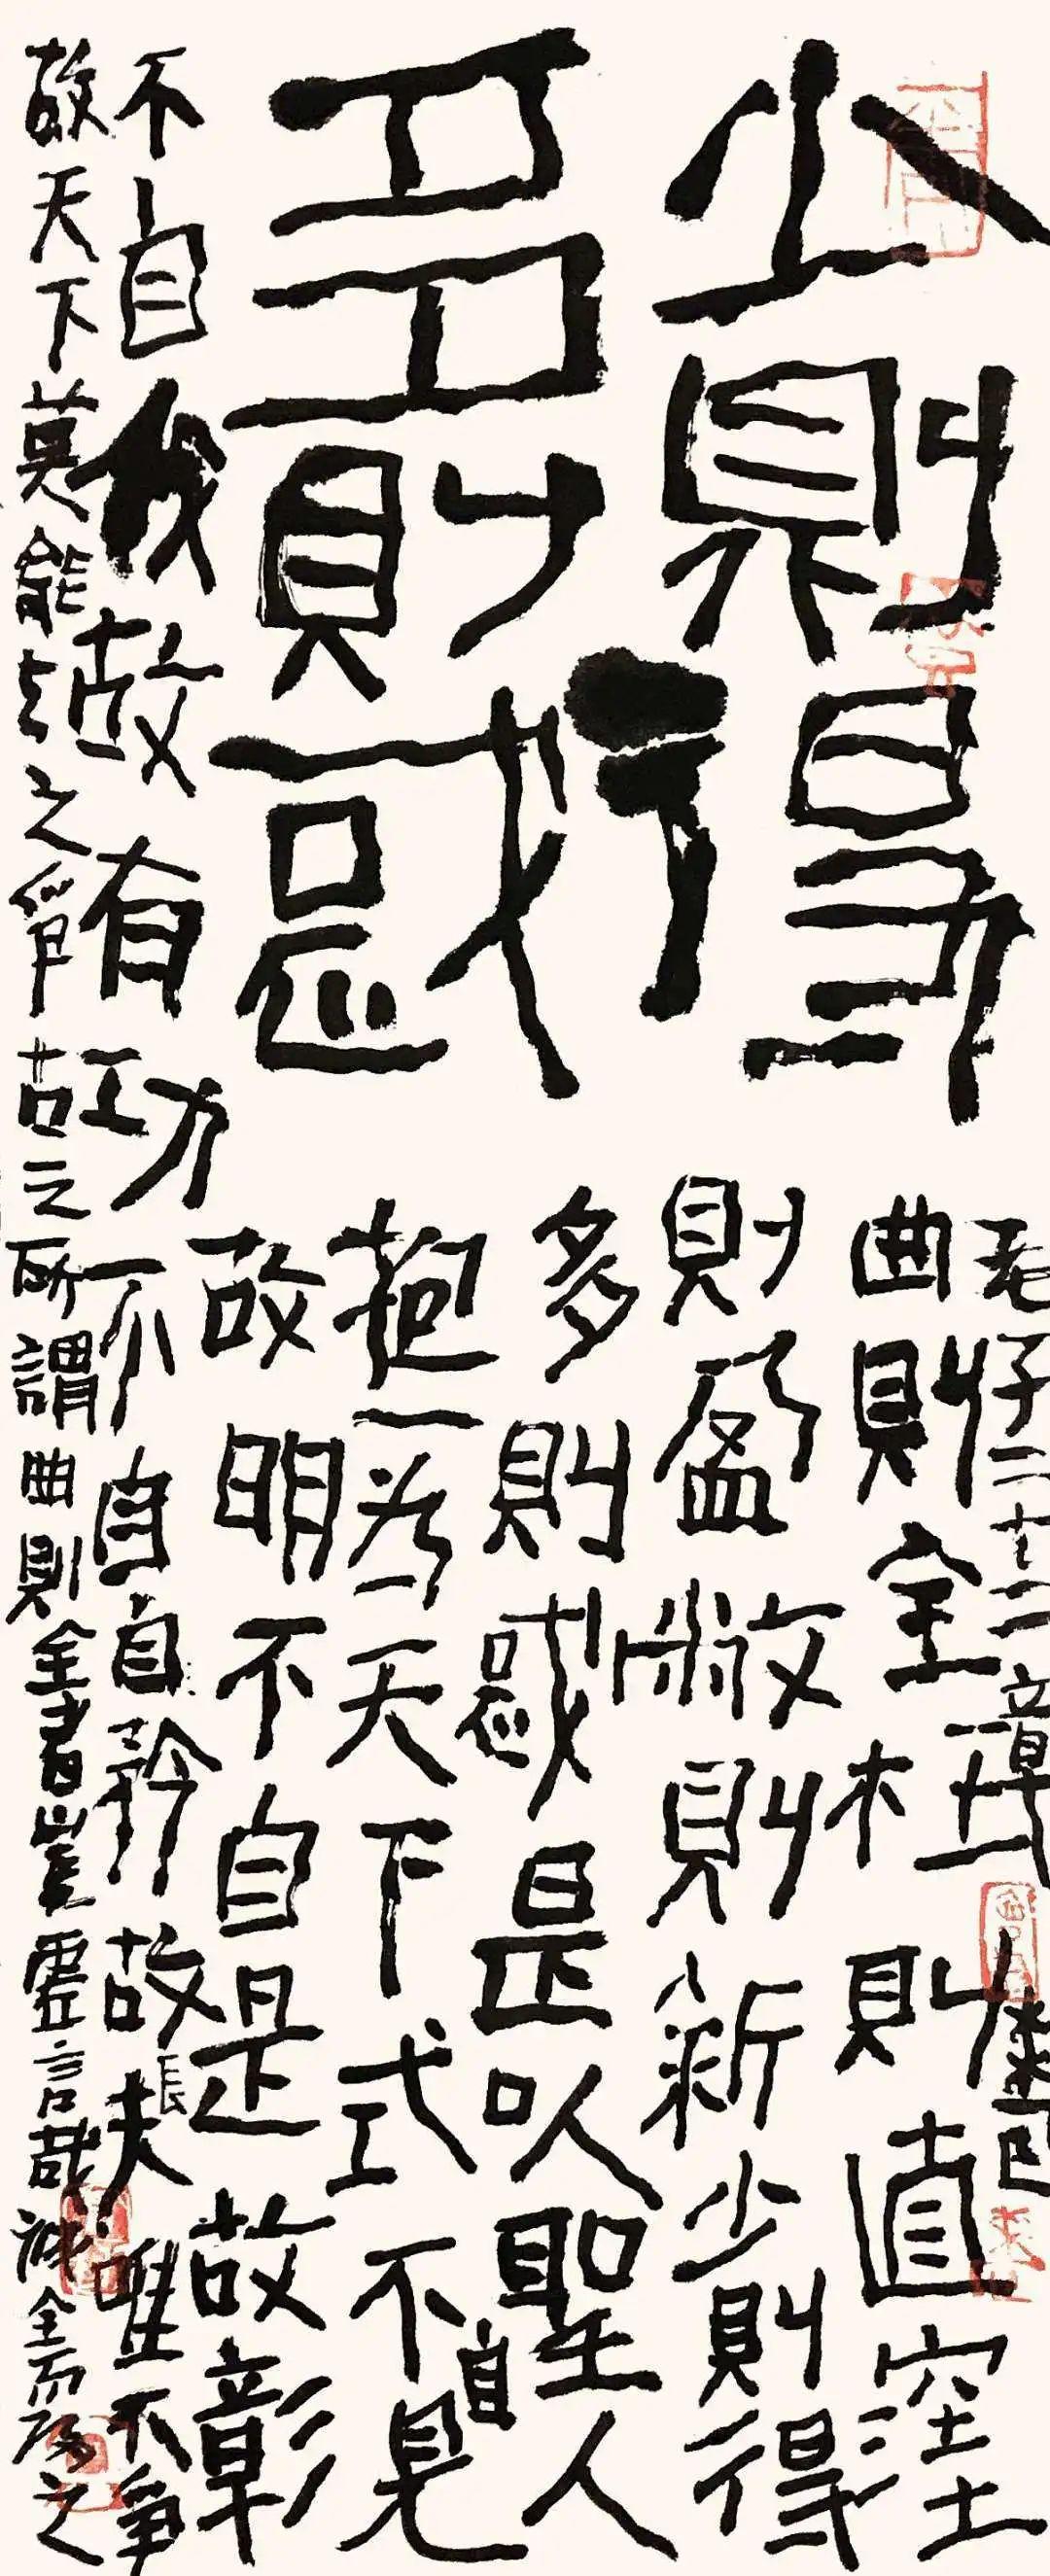 少則得
多則惑
老子二十二章
曲則全枉則直窪
則盈敝則新少則得
多則惑是以聖人
抱一為天下式不自見
故明不自是故彰
不自伐故有功不自自矜故長夫唯不爭
故天下莫能与之爭古之所謂曲則全者豈虛言哉誠全而歸之